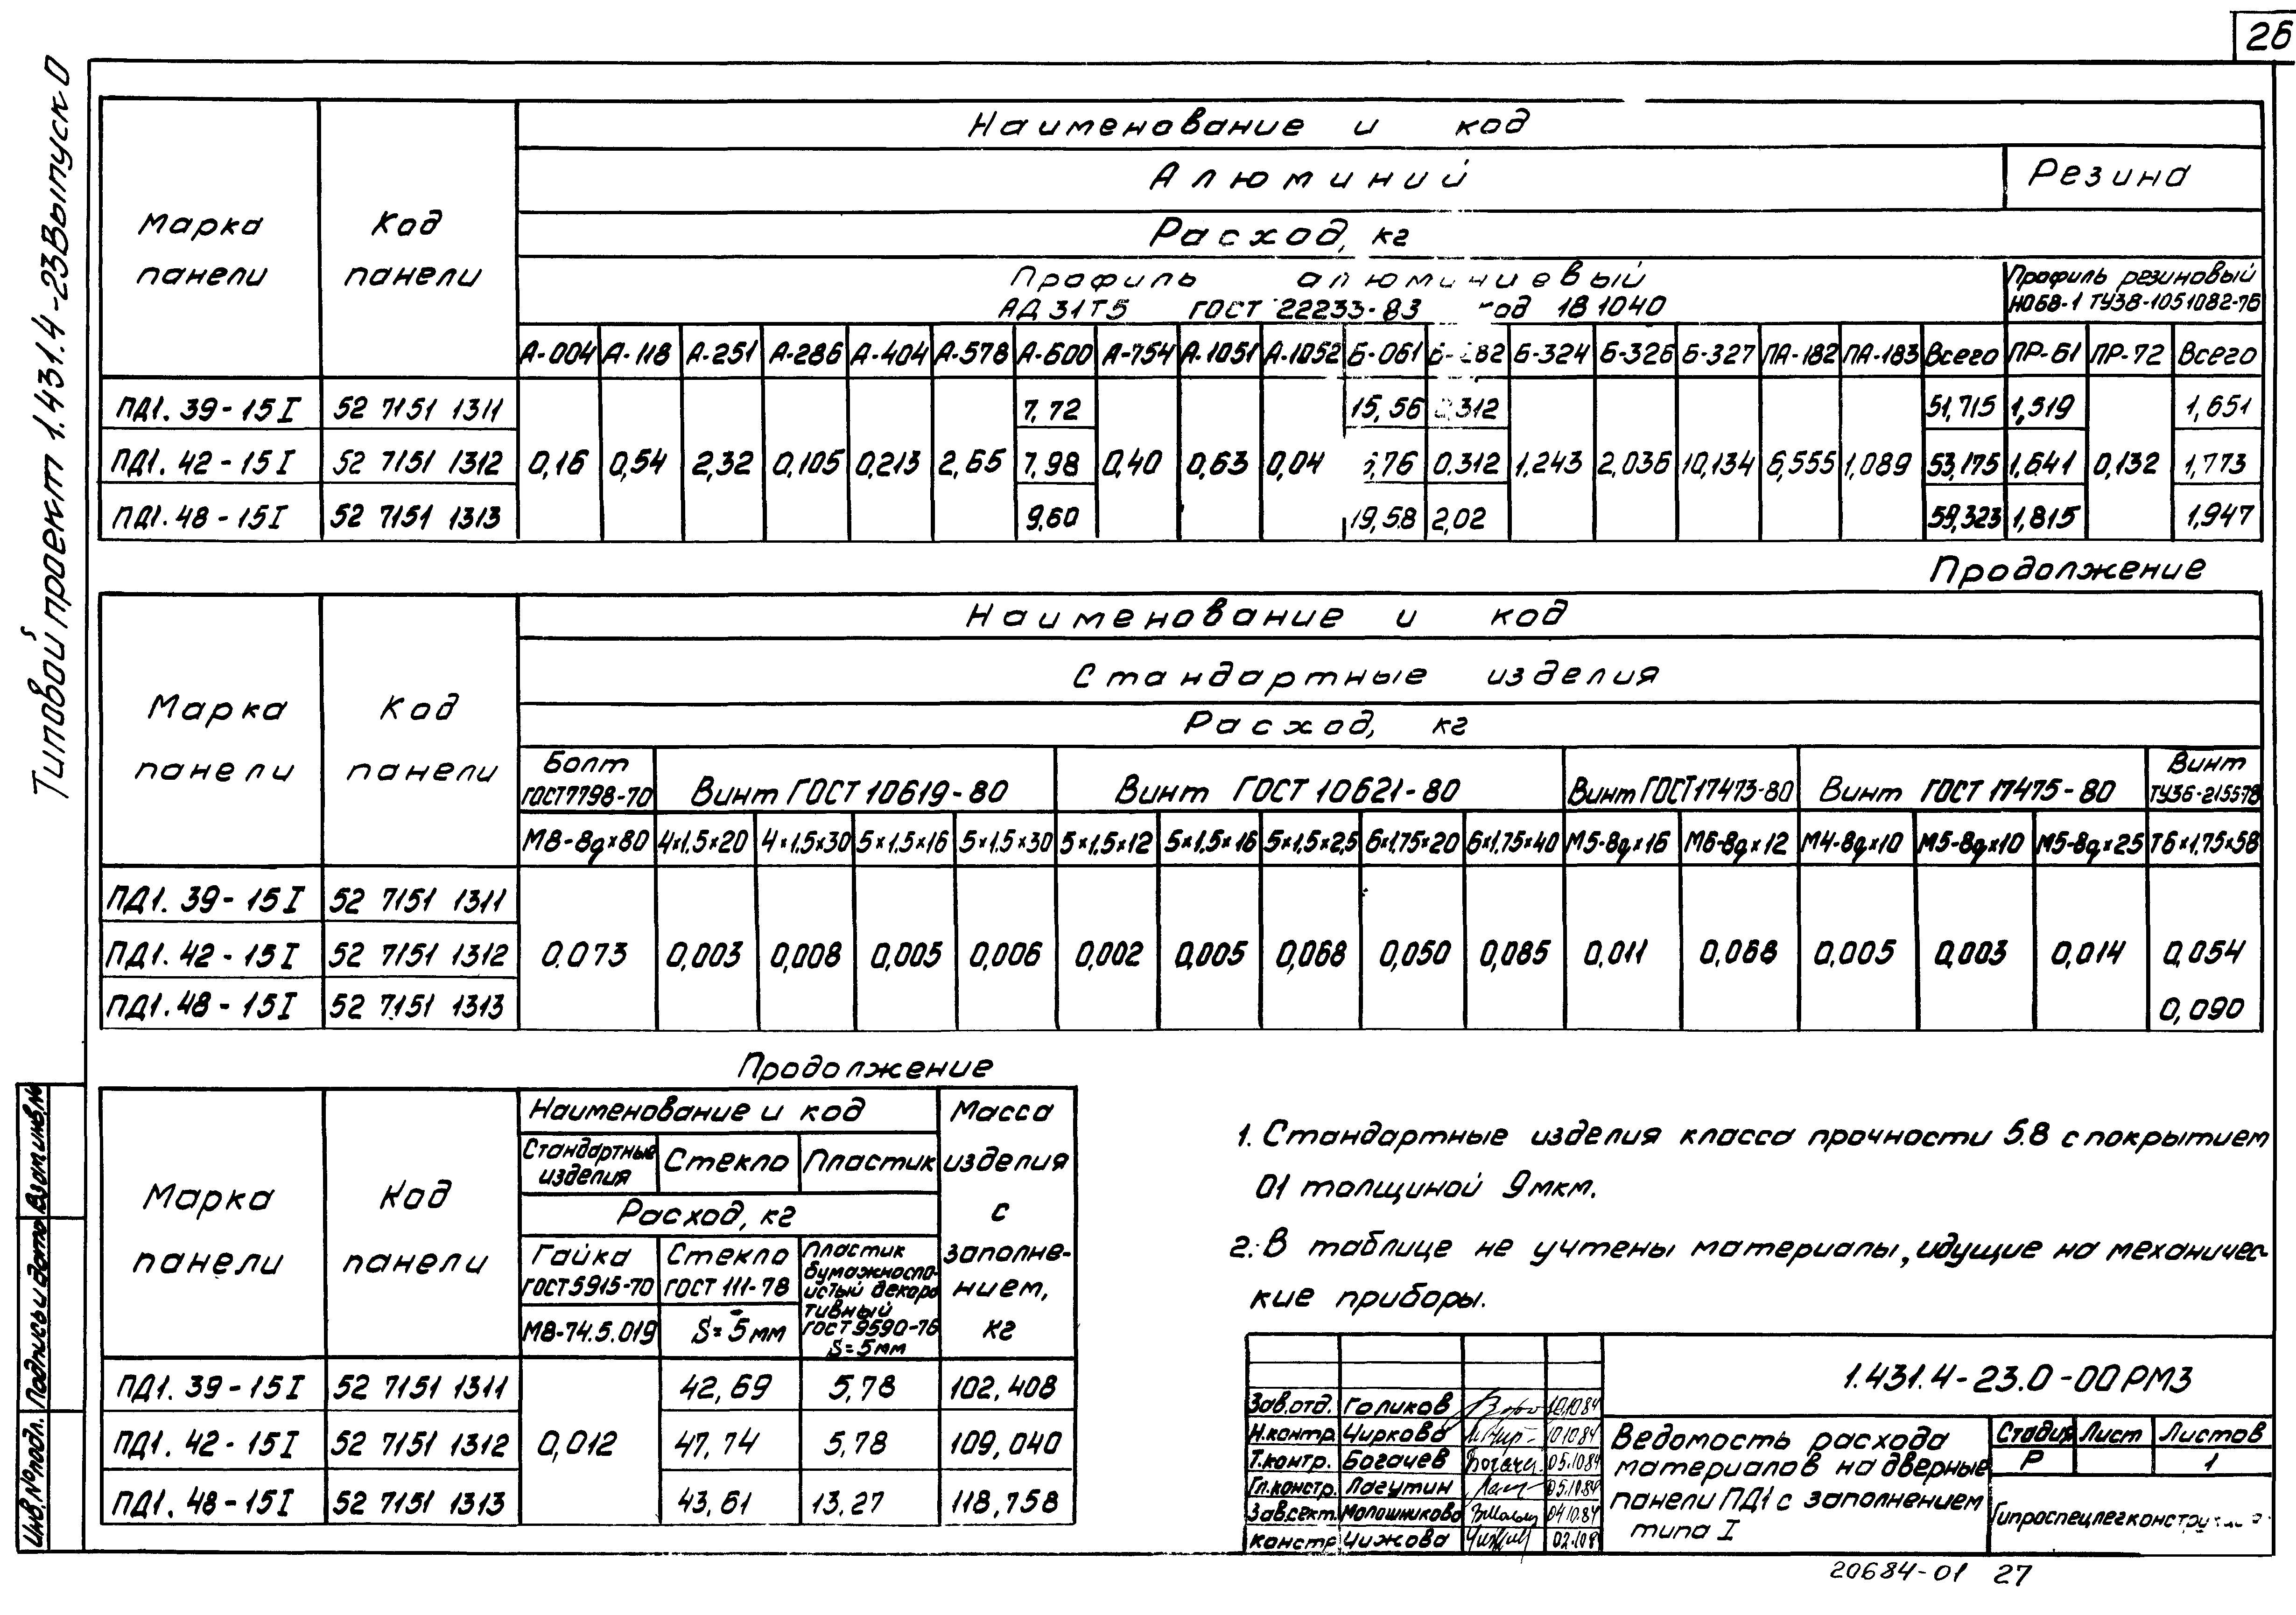 26
Типовой проект 1.431.4-23 Выпуск 0
Марка панели
Код панели
Наименование и код
Алюминий
Резина
Расход, кг
Профиль алюминиевый
АД31Т5 ГОСТ 22233-83 код 18 1040
Профиль резиновый
НО68-1 ТУ38-1051082-76
А-004 А-118 А-251 А-286 А-404 А-578 А-600 А-754 А-1051 А-1052 Б-061 Б-324 Б-326 Б-327 ПА-182 ПА-183 Всего ПР-61 ПР-72 Всего
ПД1. 39-15I 52 7151 1311 7,72 15,56 51,715 1,519 1,651
ПД1. 42-15I 52 7151 1312 0,16 0,54 2,32 0,105 0,213 2,65 7,98 0,40 0,63 0,04 0,312 1,243 2,036 10,134 6,555 1,089 53,175 1,641 0,132 1,773
ПД1. 48-15I 52 7151 1313 9,60 19,58 2,02 59,323 1,815 1,947
Продолжение
Марка панели
Код панели
Наименование и код
Стандартные изделия
Расход, кг
Болт ГОСТ7798-70 Винт ГОСТ 10619-80 Винт ГОСТ 10621-80 Винт ГОСТ17473-80 Винт ГОСТ 17475-80 Винт ТУ36-2155-78
М8-8g×80 4×1,5×20 4×1,5×30 5×1,5×16 5×1,5×30 5×1,5×12 5×1,5×16 5×1,5×25 6×1,75×20 6×1,75×40 М5-8g×16 М6-8g×12 М4-8g×10 М5-8g×10 М5-8g×25 Т6×1,75×58
ПД1. 39-15I 52 7151 1311
ПД1. 42-15I 52 7151 1312 0,073 0,003 0,008 0,005 0,006 0,002 0,005 0,068 0,050 0,085 0,011 0,068 0,005 0,003 0,014 0,054
ПД1. 48-15I 52 7151 1313 0,090
Продолжение
Марка панели
Код панели
Наименование и код
Масса изделия с заполнением, кг
Стандартные изделия Стекло Пластик
Расход, кг
Гайка ГОСТ5915-70
Стекло ГОСТ 111-78
Пластик бумажнослоистый декоративный ГОСТ 9590-76 S=5мм
М8-74.5.019 S=5мм
ПД1. 39-15I 52 7151 1311 42,69 5,78 102,408
ПД1. 42-15I 52 7151 1312 0,012 47,74 5,78 109,040
ПД1. 48-15I 52 7151 1313 43,61 13,27 118,758
1. Стандартные изделия класса прочности 5.8 с покрытием
01 толщиной 9мкм.
2. В таблице не учтены материалы, идущие на механичес-
кие приборы.
1.431.4-23.0-00РМ3
Зав.отд. Голиков 10.10.84
Н.контр. Чиркова 10.10.84
Т.контр. Богачев 05.10.84
Гл.констр. Лагутин 05.10.84
Зав.сект. Молошникова 04.10.84
Констр Чижова 02.108
Ведомость расхода
материалов на дверные
панели ПД1 с заполнением
типа I
Стадия Лист Листов
Р 1
Инв.№подл. Подпись и дата Взам.инв.№
20684-01 27